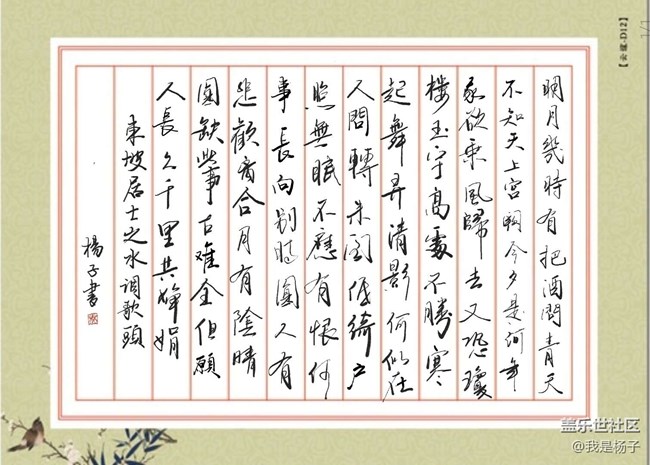 明月幾時有把酒問青天
不知天上宮闕今夕是何年
我欲乘風歸去又恐瓊
樓玉宇高處不勝寒
起舞弄清影何似在
人間轉朱閣低綺戶
照無眠不應有恨何
事長向别時圓人有
悲歡離合月有陰晴
圓缺此事古難全但願
人長久千里共嬋娟
東坡居士之水调歌頭
楊子書
1/1
盖乐世社区
@我是杨子